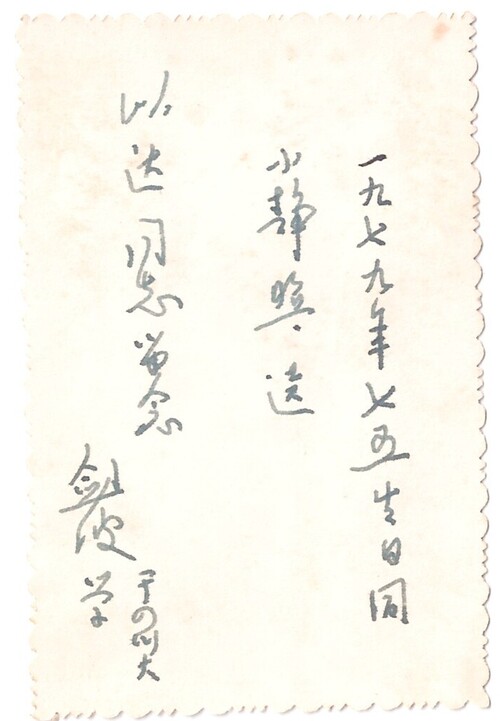 一九七九年七五生日同
小静照、送
以达同志留念
剑波
于四川大
学